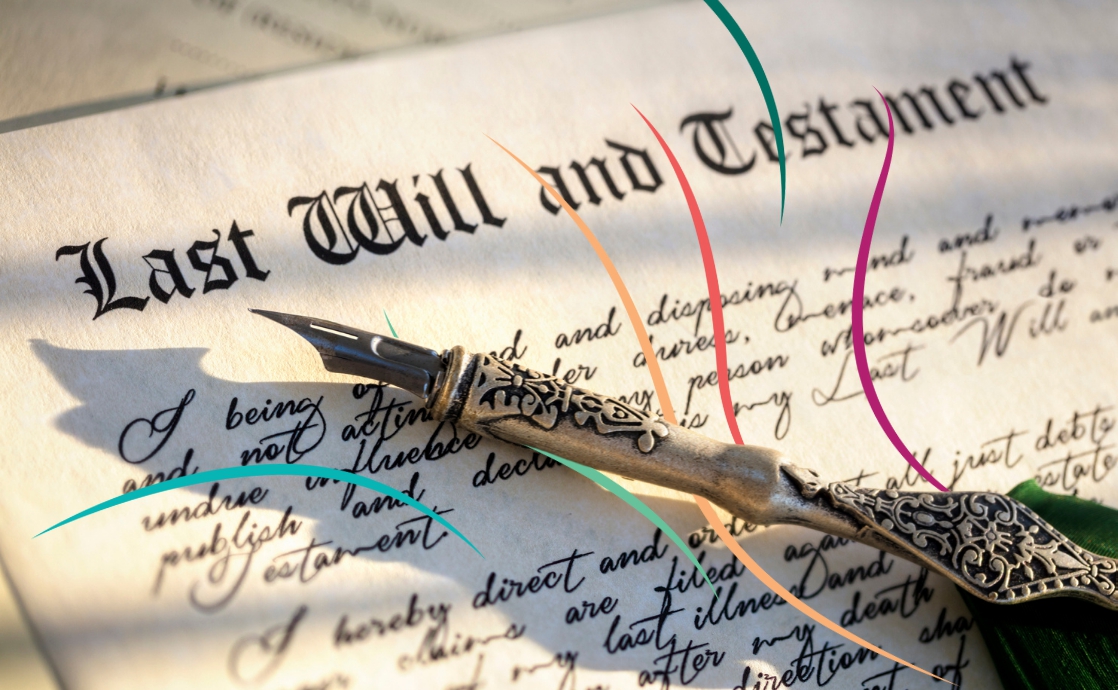 Last Will and Testament
I being of nd and disposing mind and
and not acting der duress, menace, fraud or
undue influence my person whomsoever do
publish and decla is my Last Will
estament.
I hereby direct and orde all just debts
claims are filed agai estate
my last illness and
after my death
direction sha
of